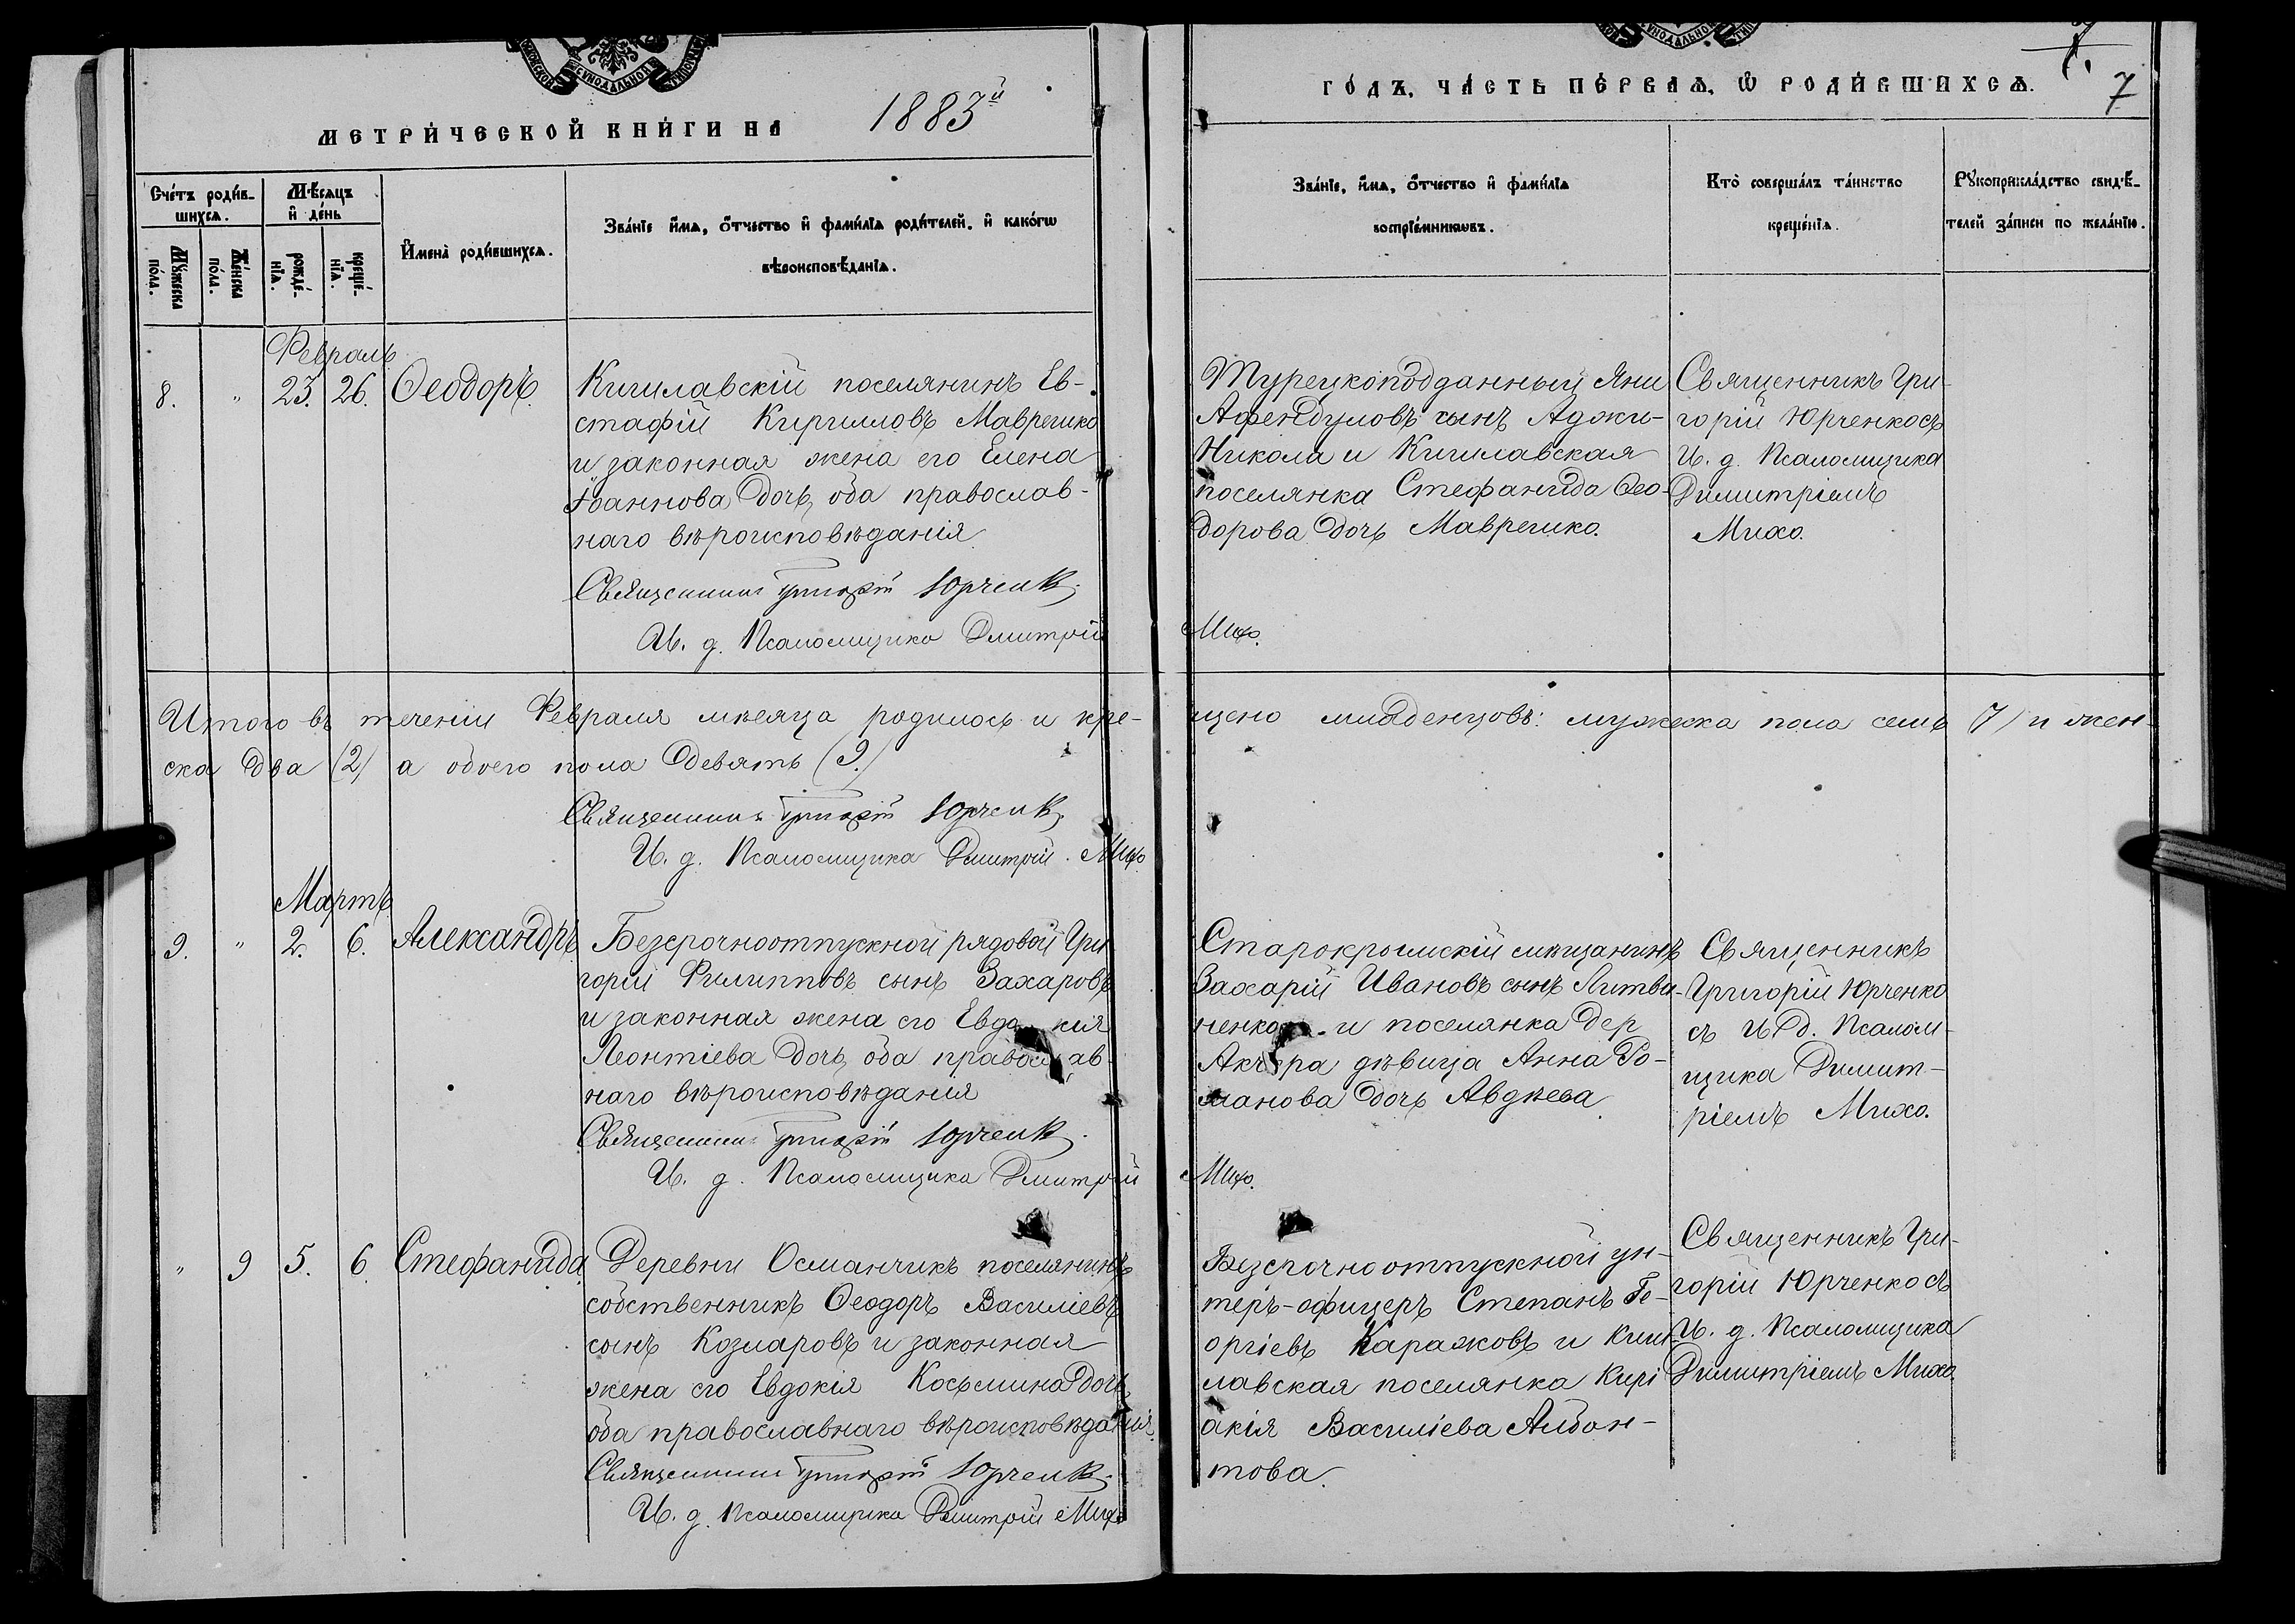 МОСКОВСКОЙ СѴНОДАЛЬНОЙ ТИПОГРАФІИ
МЕТРИ́ЧЕСКОЙ КНИ́ГИ НА 1883й
ГО́ДЪ, ЧА́СТЬ ПЕ́РВАѦ, Ѿ РОДИ́ВШИХСѦ.
7
Сче́тъ роди́в-
шихсѧ.
Мѣ́сѧцъ
и҆ де́нь
Мꙋ́жеска
по́ла.
Же́нска
по́ла.
рожде́-
нїѧ.
креще́-
нїѧ.
И҆мена̀ роди́вшихсѧ.
Зва́нїе и҆́мѧ, ѻ҆́тчество и҆ фами́лїѧ роди́телей, и҆ како́гѡ
вѣроисповѣ́данїѧ.
Зва́нїе, и҆́мѧ, ѻ҆́тчество и҆ фами́лїѧ
воспрїе́мникѡвъ.
Кто̀ соверша́лъ та́инство
креще́нїѧ.
Рꙋкоприкла́дство свидѣ́-
телей за́писи по жела́нїю.
Февраль
8. " 23. 26. Ѳеодоръ.
Кишлавскій поселянинъ Ев-
стафій Кирилловъ Маврешко
и законная жена его Елена
Іоаннова дочь, оба православ-
наго вѣроисповѣданія
Священникъ Григорій Юрченко
И. д. Псаломщика Дмитрій Михо.
Турецкоподданный Яни
Афендуловъ сынъ Аджи-
Никола и Кишлавская
поселянка Стефанида Ѳео-
дорова дочь Маврешко.
Священникъ Гри-
горій Юрченко съ
И. д. Псаломщика
Димитріемъ
Михо.
Итого въ теченіи Февраля мѣсяца родилось и кре-щено младенцовъ: мужеска пола семь 7/ и жен-
ска два (2) а обоего пола девять (9.)
Священникъ Григорій Юрченко
И. д. Псаломщика Дмитрій Михо
Мартъ
9. " 2. 6. Александръ
Безсрочноотпускной рядовой Гри
горій Филипповъ сынъ Захаровъ
и законная жена его Евдокія
Леонтіева дочь, оба православ-
наго вѣроисповѣданія
Священникъ Григорій Юрченко
И. д. Псаломщика Дмитрій Михо.
Старокрымскій мѣщанинъ
Захарій Ивановъ сынъ Литви-
ненко и поселянка дер
дѣвица Анна Ро-
манова дочь Авдѣева
Священникъ
Григорій Юрченко
съ И д. Псалом-
щика Димит-
ріемъ Михо.
" 9 5. 6 Стефанида
Деревни Османчикъ поселянинъ
собственникъ Ѳеодоръ Василіевъ
сынъ Козмаровъ и законная
жена его Евдокія Косьмина дочь,
оба православнаго вѣроисповѣданія.
Священникъ Григорій Юрченко
И. д. Псаломщика Дмитрій Михо
Безсрочноотпускной ун-
теръ-офицеръ Степанъ Ге-
оргіевъ Каражовъ и Киш
лавская поселянка Кирі
акія Василіева Айбон-
това.
Священникъ Гри-
горій Юрченко съ
И. д. Псаломщика
Димитріемъ Михо.